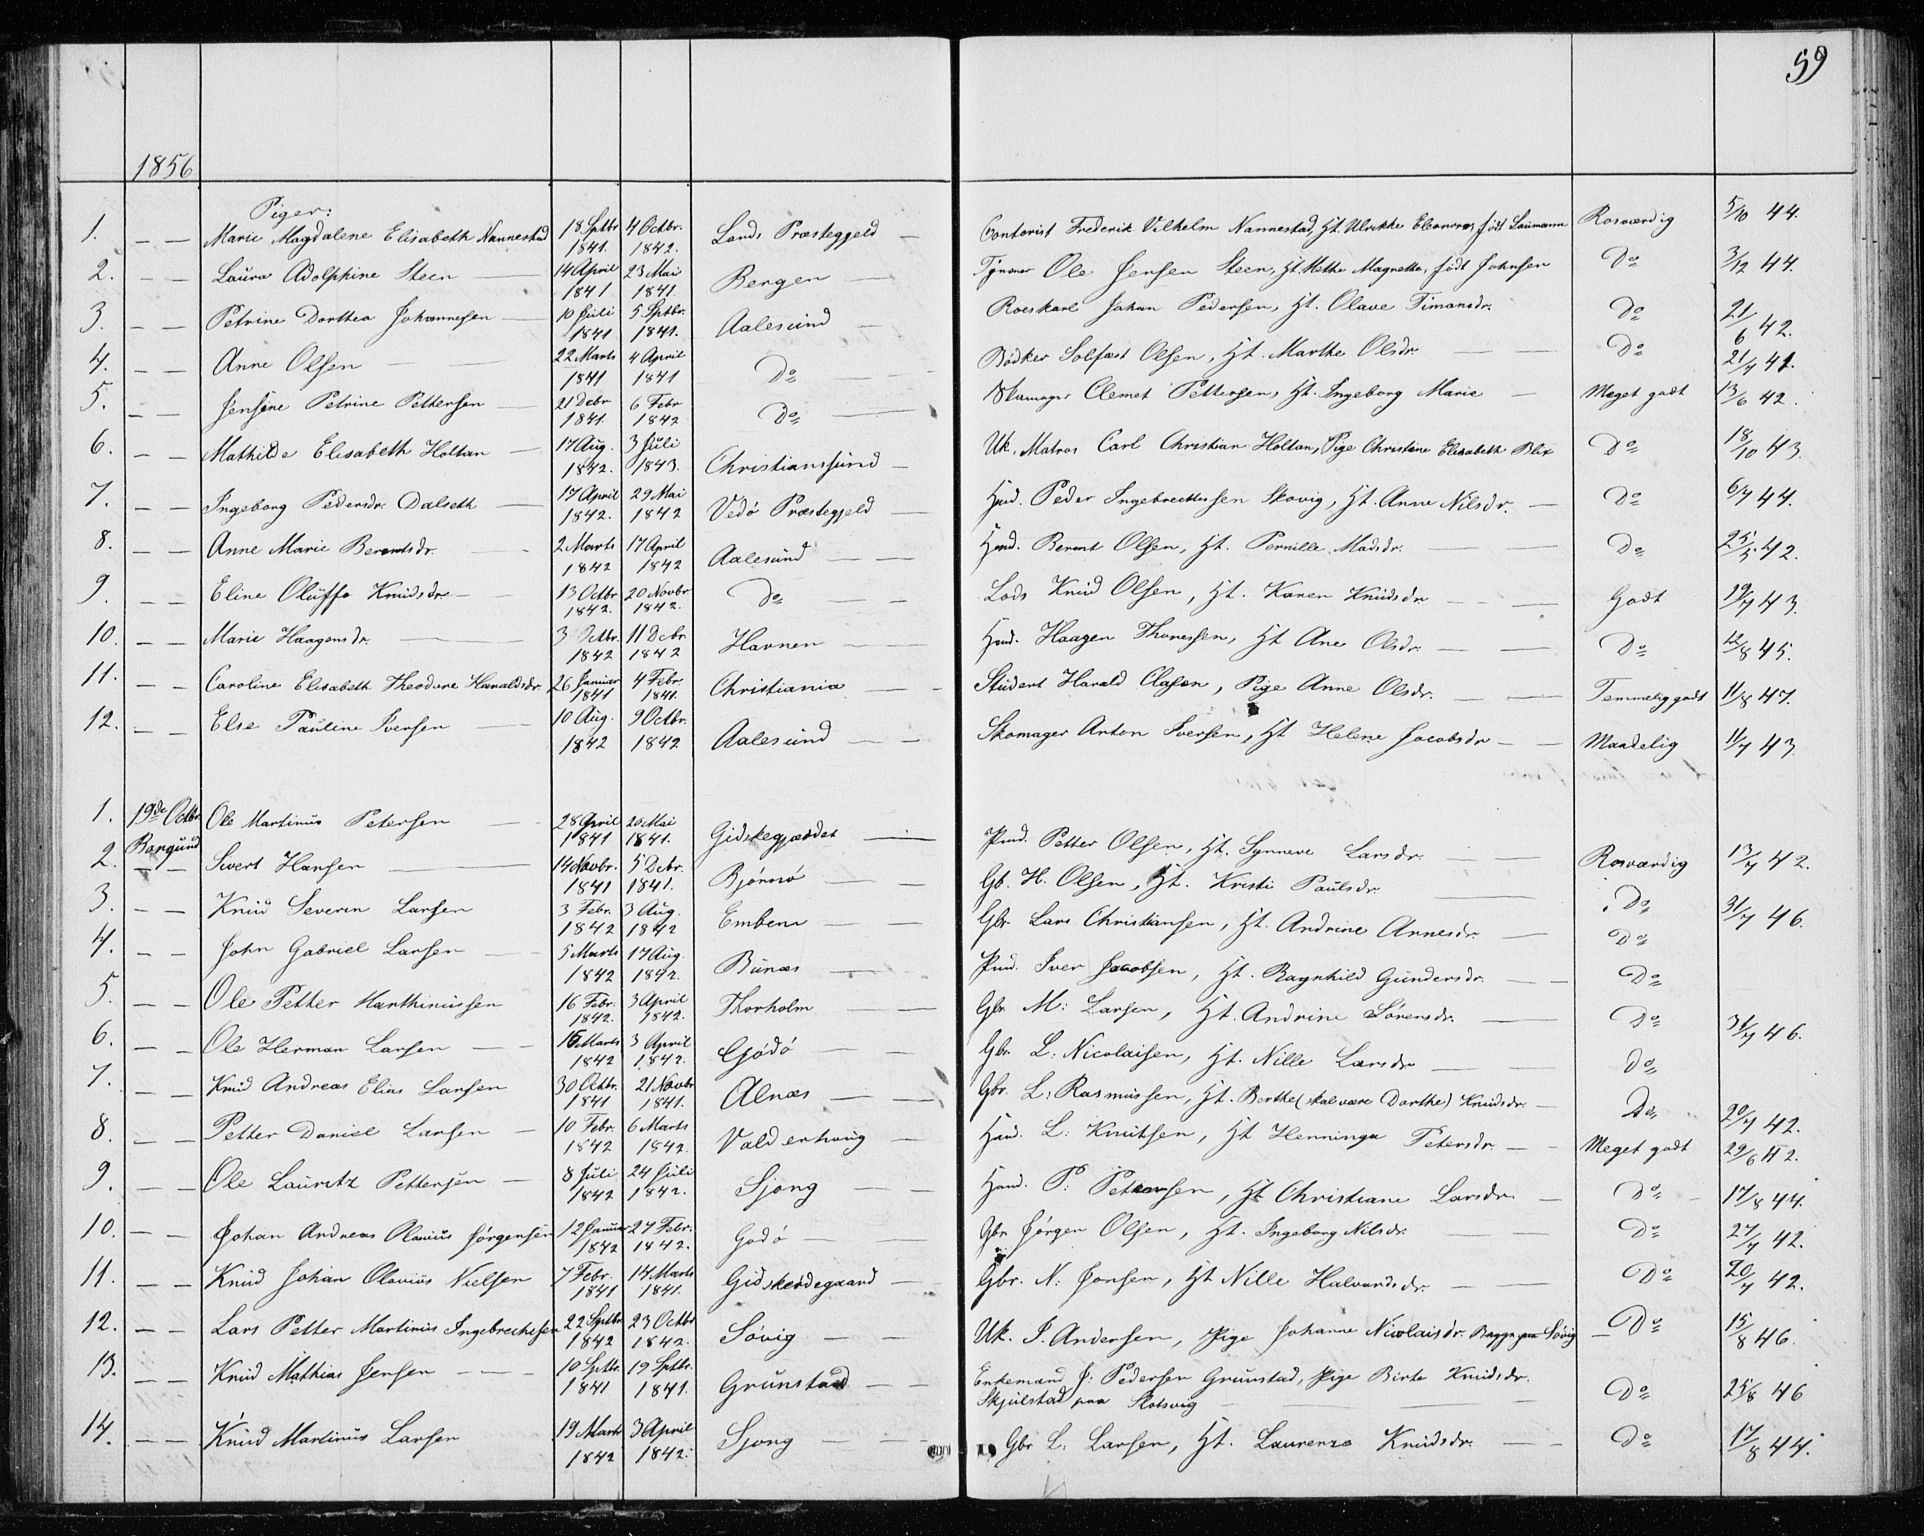 59
1856
Piger:
1. — — Marie Magdalene Elisabeth Nannestad 18 Sptbr 1841. 4 Octbr. 1842. Lands Præstegjeld — Contorist Frederik Vilhelm Nannestad, Ht. Ulrikke Eleonora, født Laumann Rosværdig 5/10 44.
2. — — Laura Adolphine Steen — 14 April 1841 23 Mai 1841. Bergen — Ole Jensen Steen, Ht. Methe Magnette, født Johnsen Do 3/12 44.
3. — — Petrine Dorthea Johannesen — 10 Juli 1841 5 Sptbr. 1841. Aalesund — Roeskarl Johan Pedersen, Ht. Olave Timansdr. Do 21/6 42.
4. — — Anne Olsen — 22 Marts 1841 4 April 1841 Do — Bødker Solfæst Olsen, Ht. Marthe Olsdr. — Do 21/7 41.
5. — — Jensine Petrine Pettersen — 21 Debr 1841. 6 Febr 1842 Do — Clemet Pettersen, Ht. Ingeborg Marie — Meget godt 13/6 42.
6. — — Mathilde Elisabeth Holtan — 17 Aug. 1842. 3 Juli 1843. Christianssund — Uk. Matros Carl Christian Holtan, Pige Christine Elisabeth Blix Do 18/10 43.
7. — — Ingeborg Pedersdr. Dalseth — 17 April 1842. 29 Mai 1842 Vedø Præstegjeld — Hmd. Peder Ingebrechtsen Skovig, Ht. Anne Nilsdr. — Do 6/7 44.
8. — — Anne Marie Berentsdr. — 2 Marts 1842 17 April 1842 Aalesund — Hmd. Berent Olsen, Ht. Pernille Madsdr. — Do 25/5 42.
9. — — Eline Oluffa Knudsdr — 13 Octbr 1842. 20 Novbr 1842. Do — Lods Knud Olsen, Ht. Karen Knudsdr — Godt 29/7 43.
10. — — Marie Haagensdr. — 3 Octbr. 1842 11 Debr 1842 Havnen — Hmd. Haagen Thoresen, Ht Ane Olsdr. — Do 12/8 45.
11. — — Caroline Elisabeth Theodore Haraldsdr. 26 Januar 1841 4 Febr. 1841. Christiania — Student Harald Olasen, Pige Anne Olsdr. — Temmelig godt 11/8 47.
12. — — Else Pauline Iversen — 10 Aug. 1842 9 Octbr. 1842 Aalesund — Skomager Anton Iversen, Ht Helene Jacobsdr — Maadelig 11/7 43.
1. 19de Octbr. Borgund Ole Martinus Petersen — 28 April 1841 20 Mai 1841. Gidskegjærdet — Pmd. Petter Olsen, Ht. Synneve Larsdr. — Rosværdig 13/7 42.
2. — — Sivert Hansen — 14 Novbr. 1841 5 Debr. 1841. Bjørnø — Gb. H. Olsen, Ht. Kristi Paulsdr. — Do
3. — — Knud Severin Larsen 3 Febr. 1842 3 Aug. 1842 Emblem — Gbr Lars Christiansen, Ht. Andrine Annesdr. — Do 31/7 46.
4. — — John Gabriel Larsen — 5 Marts 1842 17 Aug. 1842. Bunæs — Pmd. Iver Jacobsen, Ht. Ragnhild Gundersdr. — Do
5. — — Ole Petter Marthinussen 16 Febr. 1842. 3 April 1842. Thorholm — Gbr. M: Larsen, Ht. Andrine Sørensdr. — Do 31/7 46.
6. — — Ole Herman Larsen — 16 Marts 1842 3 April 1842. Gjødø — Gbr. L: Nicolaisen, Ht. Nille Larsdr — Do
7. — — Knud Andreas Elias Larsen 30 Octbr. 1841 21 Novbr 1841. Alnæs — Gbr. L: Rasmussen, Ht. Berthe (skal være Dorthe) Knudsdr. — Do 20/7 42.
8. — — Petter Daniel Larsen — 10 Febr. 1842 6 Marts 1842. Valderhoug — Hmd. L: Knutsen, Ht Henninga Petersdr. — Meget godt 29/6 42.
9. — — Ole Lauritz Pettersen — 8 Juli 1842 24 Juli 1842. Sjong — Hmd. P: Petersen, Ht Christiane Larsdr. — Do 17/8 44.
10. — — Johan Andreas Olavius Jørgensen 12 Januar 1842 27 Febr. 1842. Godø — Gbr. Jørgen Olsen, Ht. Ingeborg Nilsdr. — Do 27/7 42.
11. — — Knud Johan Olavius Nielsen 7 Febr. 1841 14 Marts 1841. Gidskeødegaard — Gbr. N: Jonsen, Ht Nille Halvardsdr. — Do 20/7 42.
12. — — Lars Petter Martinus Ingebrechtsen 22 Sptbr 1842 23 Octbr 1842. Søvig — Uk. I. Andersen, Pige Johanne Nicolaisdr. Bagge paa Søvig — Do 15/8 46.
13. — — Knud Mathias Jensen — 10 Sptbr. 1841 19 Sptbr. 1841. Grunstad — Enkemand J: Pedersen Grunstad, Pige Birte Knudsdr.
Skjulstad paa Slotsvig — Do 25/8 46
14. — — Knud Martinus Larsen 19 Marts 1842 3 April 1842. Sjong — Gbr L: Larsen, Ht. Laurenze Knudsdr. — Do 17/8 44.